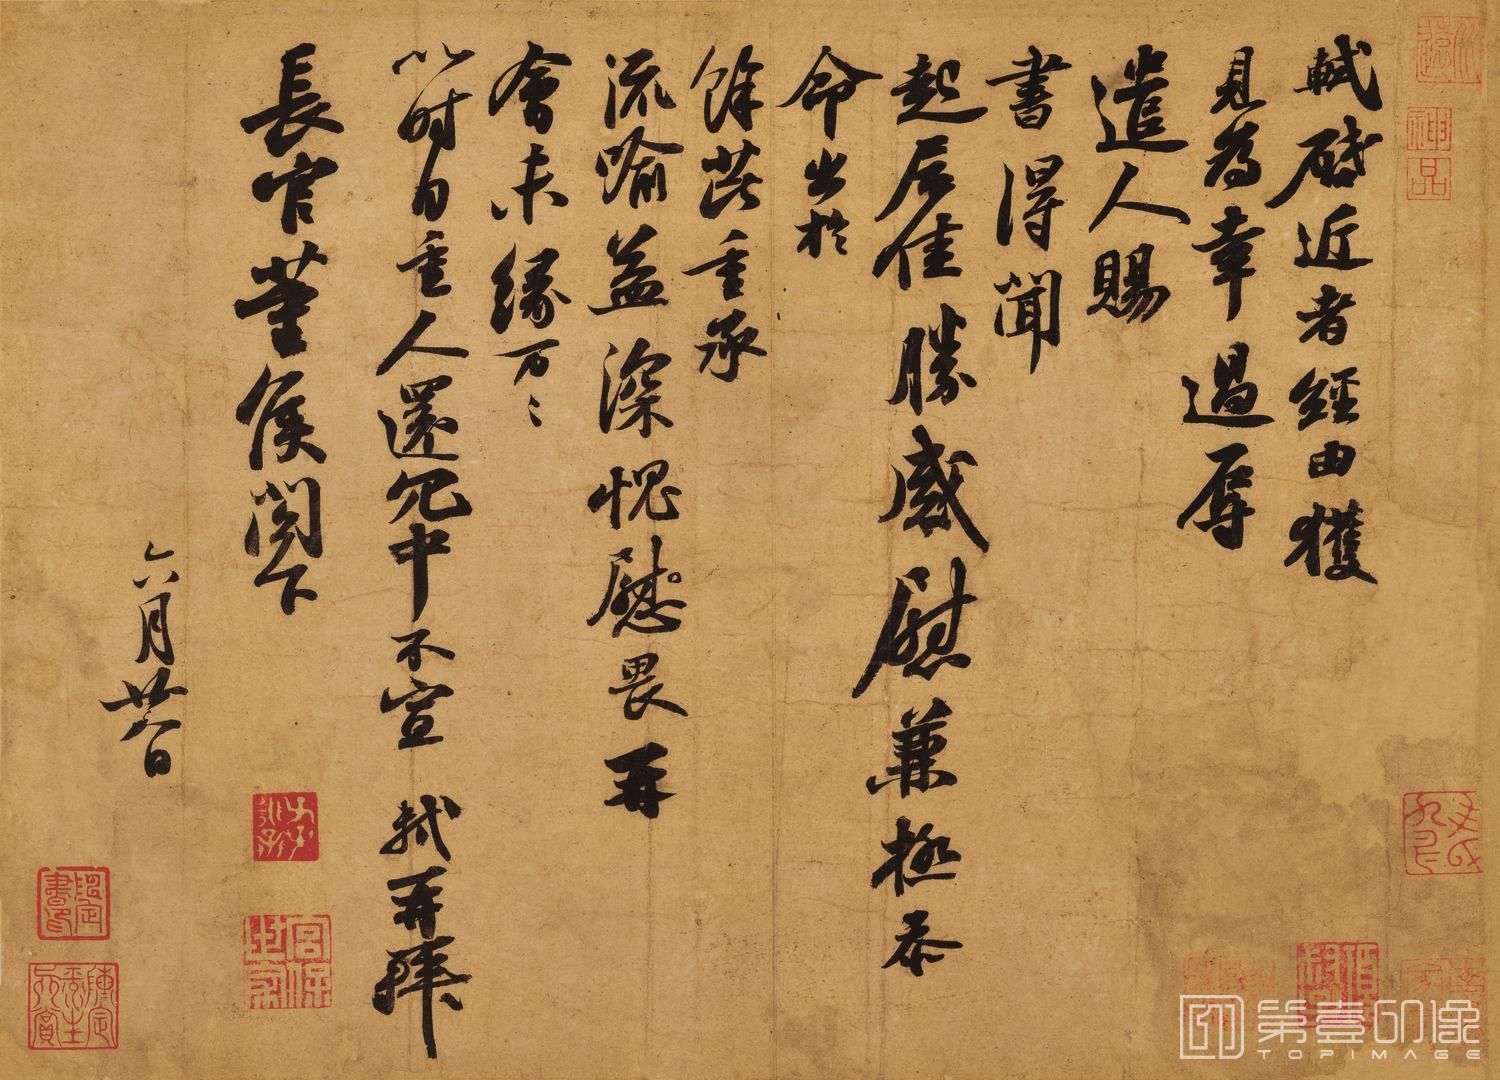 神品
軾啓近者經由獲
見為幸過辱
遣人賜
書得聞
起居佳勝感慰兼極忝
命出於
餘芘重承
流喻益深愧慰畏再
會未緣万〻
以時自重人還冗中不宣 軾再拜
長官董侯閤下
六月廿八日
宮保世家
第壹印像
TOPIMAGE